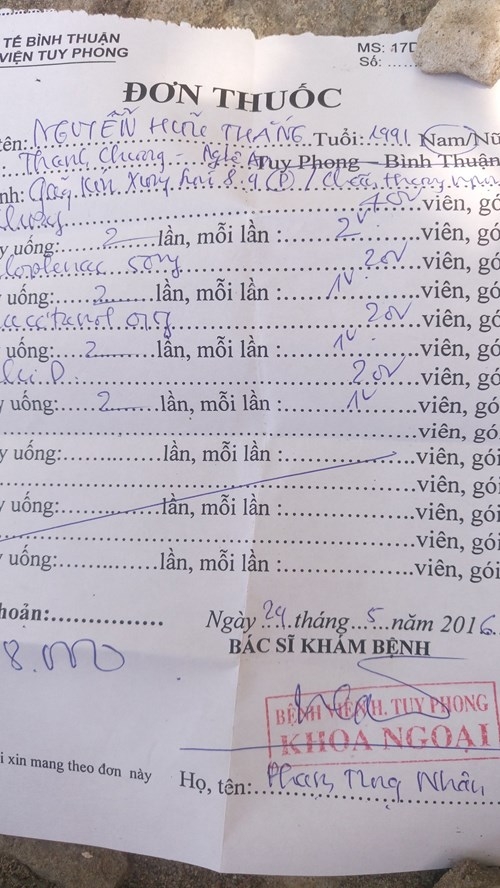 TẾ BÌNH THUẬN
VIỆN TUY PHONG
MS: 17D
Số: ......
ĐƠN THUỐC
tên: NGUYỄN HỮU THẮNG Tuổi: 1991 Nam/Nữ
Thanh Chương - Nghệ An Tuy Phong - Bình Thuận
nh: Gãy kín xương 8.9 (P) /
40v viên, gó
y uống: 2 lần, mỗi lần : 2v viên, gó
50mg 20v viên, gó
y uống: 2 lần, mỗi lần : 1v viên, gó
20v viên, gó
y uống: 2 lần, mỗi lần : 1v viên, gó
D 20v viên, gó
y uống: 2 lần, mỗi lần : 1v viên, gói
viên, gói
y uống: lần, mỗi lần : viên, gói
viên, gói
y uống: lần, mỗi lần : viên, gói
viên, gói
y uống: lần, mỗi lần : viên, gói
hoản:
Ngày 29 tháng 5 năm 2016
BÁC SĨ KHÁM BỆNH
BỆNH VIỆN H. TUY PHONG
KHOA NGOẠI
i xin mang theo đơn này
Họ, tên: Nhân